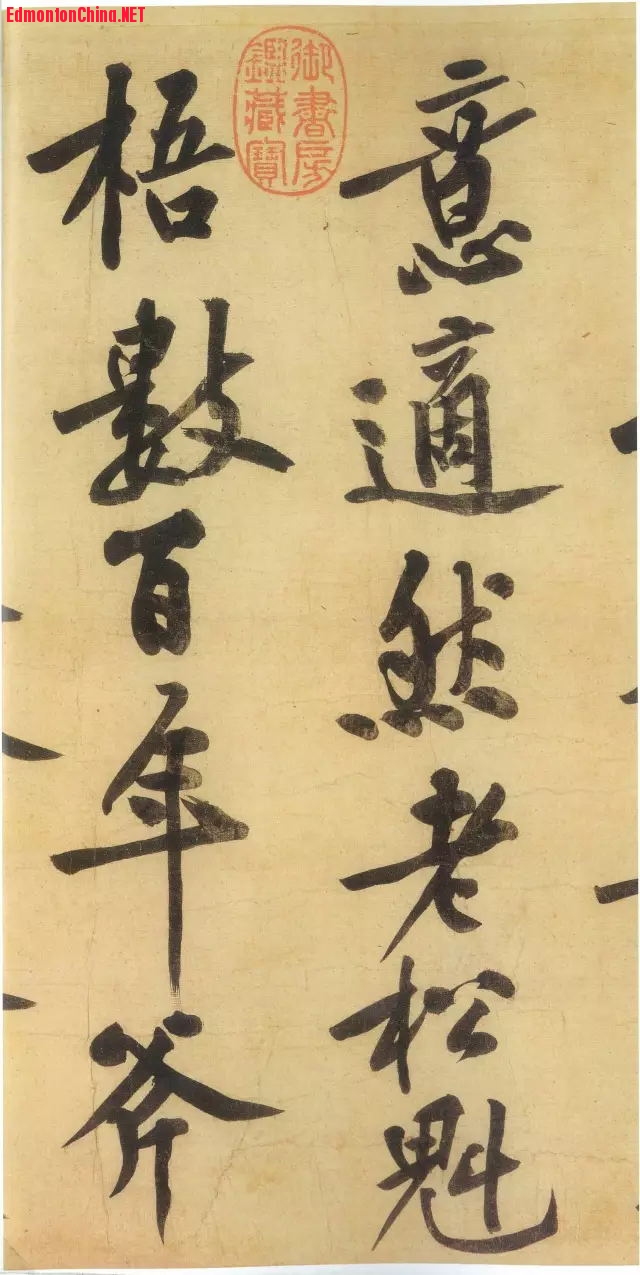 EdmontonChina.NET
意適然老松魁
梧數百年斧
御書房
鑑藏寶